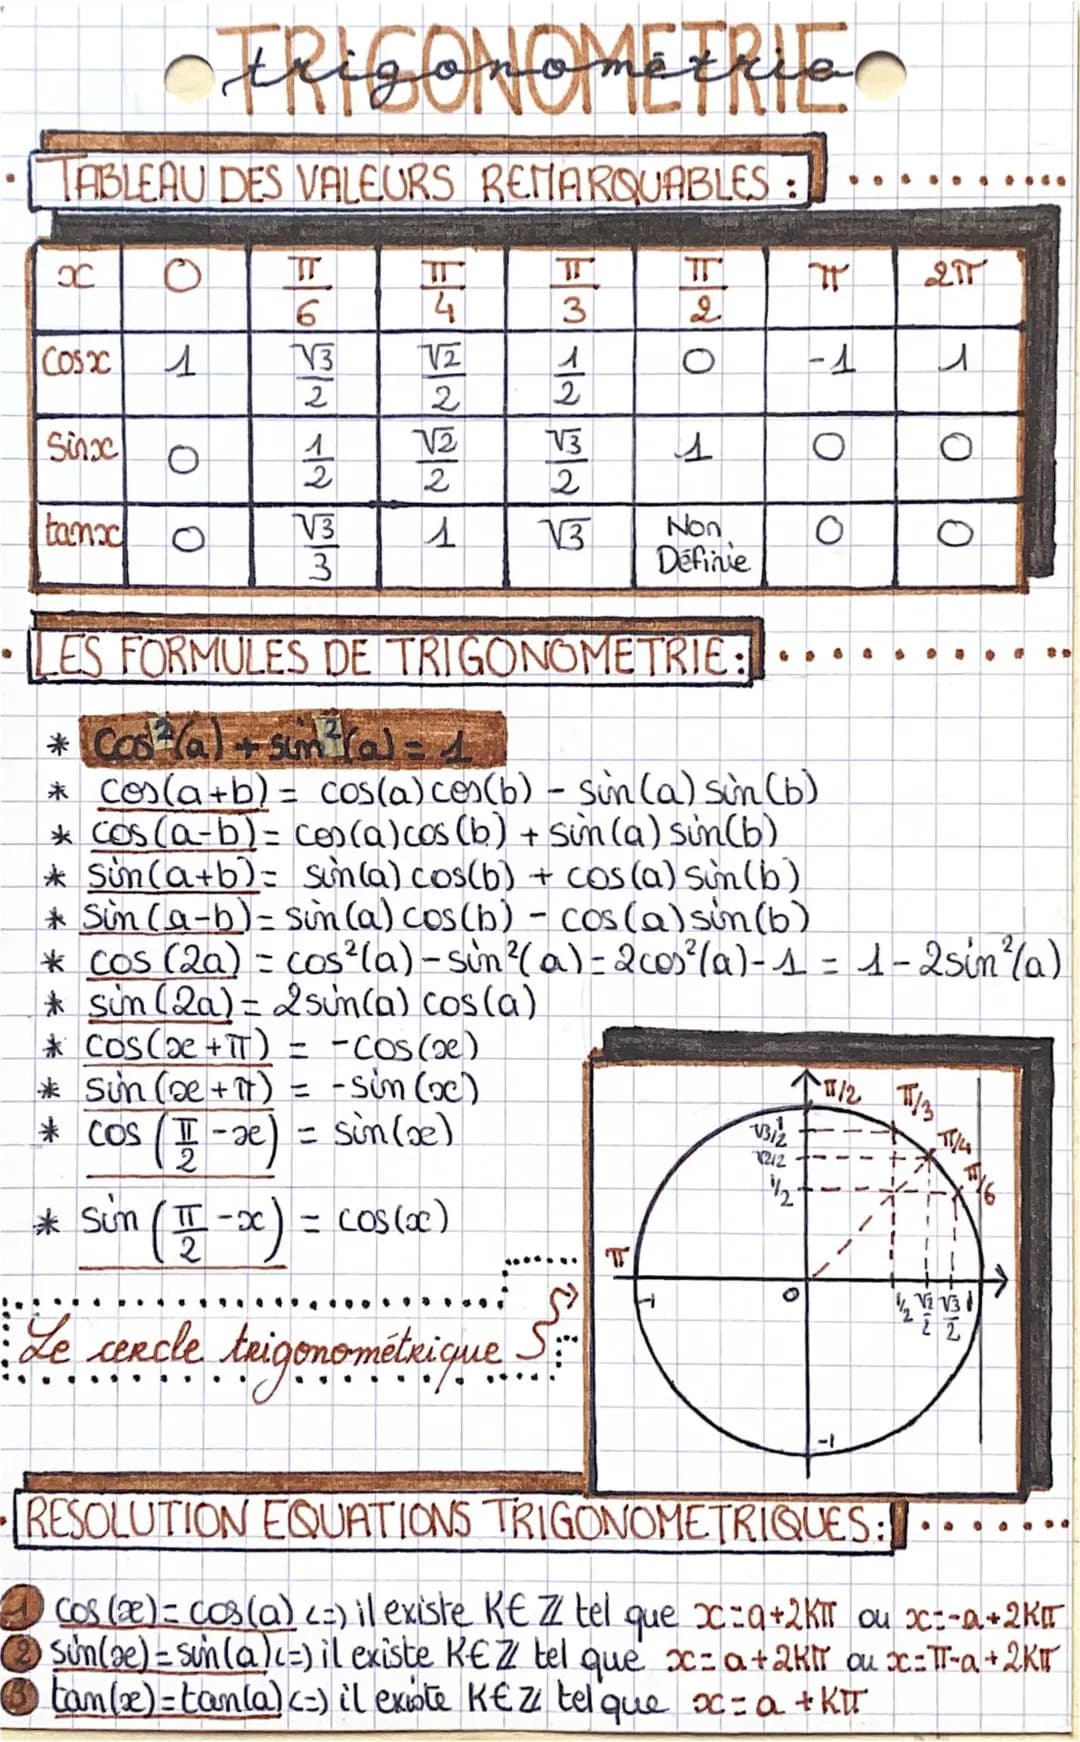 TRIGONOMETRIE
trigonométrie
TABLEAU DES VALEURS REMARQUABLES :
x 0 π/6 π/4 π/3 π/2 π 2π
cosx 1 √3/2 √2/2 1/2 0 -1 1
sinx 0 1/2 √2/2 √3/2 1 0 0
tanx 0 √3/3 1 √3 Non Définie 0 0
LES FORMULES DE TRIGONOMETRIE :
* cos²(a) + sin²(a) = 1
* cos(a+b) = cos(a) cos(b) - sin(a) sin(b)
* cos(a-b) = cos(a) cos(b) + sin(a) sin(b)
* sin(a+b) = sin(a) cos(b) + cos(a) sin(b)
* sin(a-b) = sin(a) cos(b) - cos(a) sin(b)
* cos(2a) = cos²(a) - sin²(a) = 2cos²(a) - 1 = 1 - 2sin²(a)
* sin(2a) = 2sin(a) cos(a)
* cos(x+π) = -cos(x)
* sin(x+π) = -sin(x)
* cos(π/2 - x) = sin(x)
* sin(π/2 - x) = cos(x)
Le cercle trigonométrique
π/2 π/3
1
√3/2
π/4
√2/2
π/6
1/2
π
-1 0 1/2 √2/2 √3/2 1
-1
RESOLUTION EQUATIONS TRIGONOMETRIQUES :
1 cos(x) = cos(a) <=> il existe K∈ℤ tel que x = a+2Kπ ou x = -a+2Kπ
2 sin(x) = sin(a) <=> il existe K∈ℤ tel que x = a+2Kπ ou x = π-a+2Kπ
3 tan(x) = tan(a) <=> il existe K∈ℤ tel que x = a+Kπ